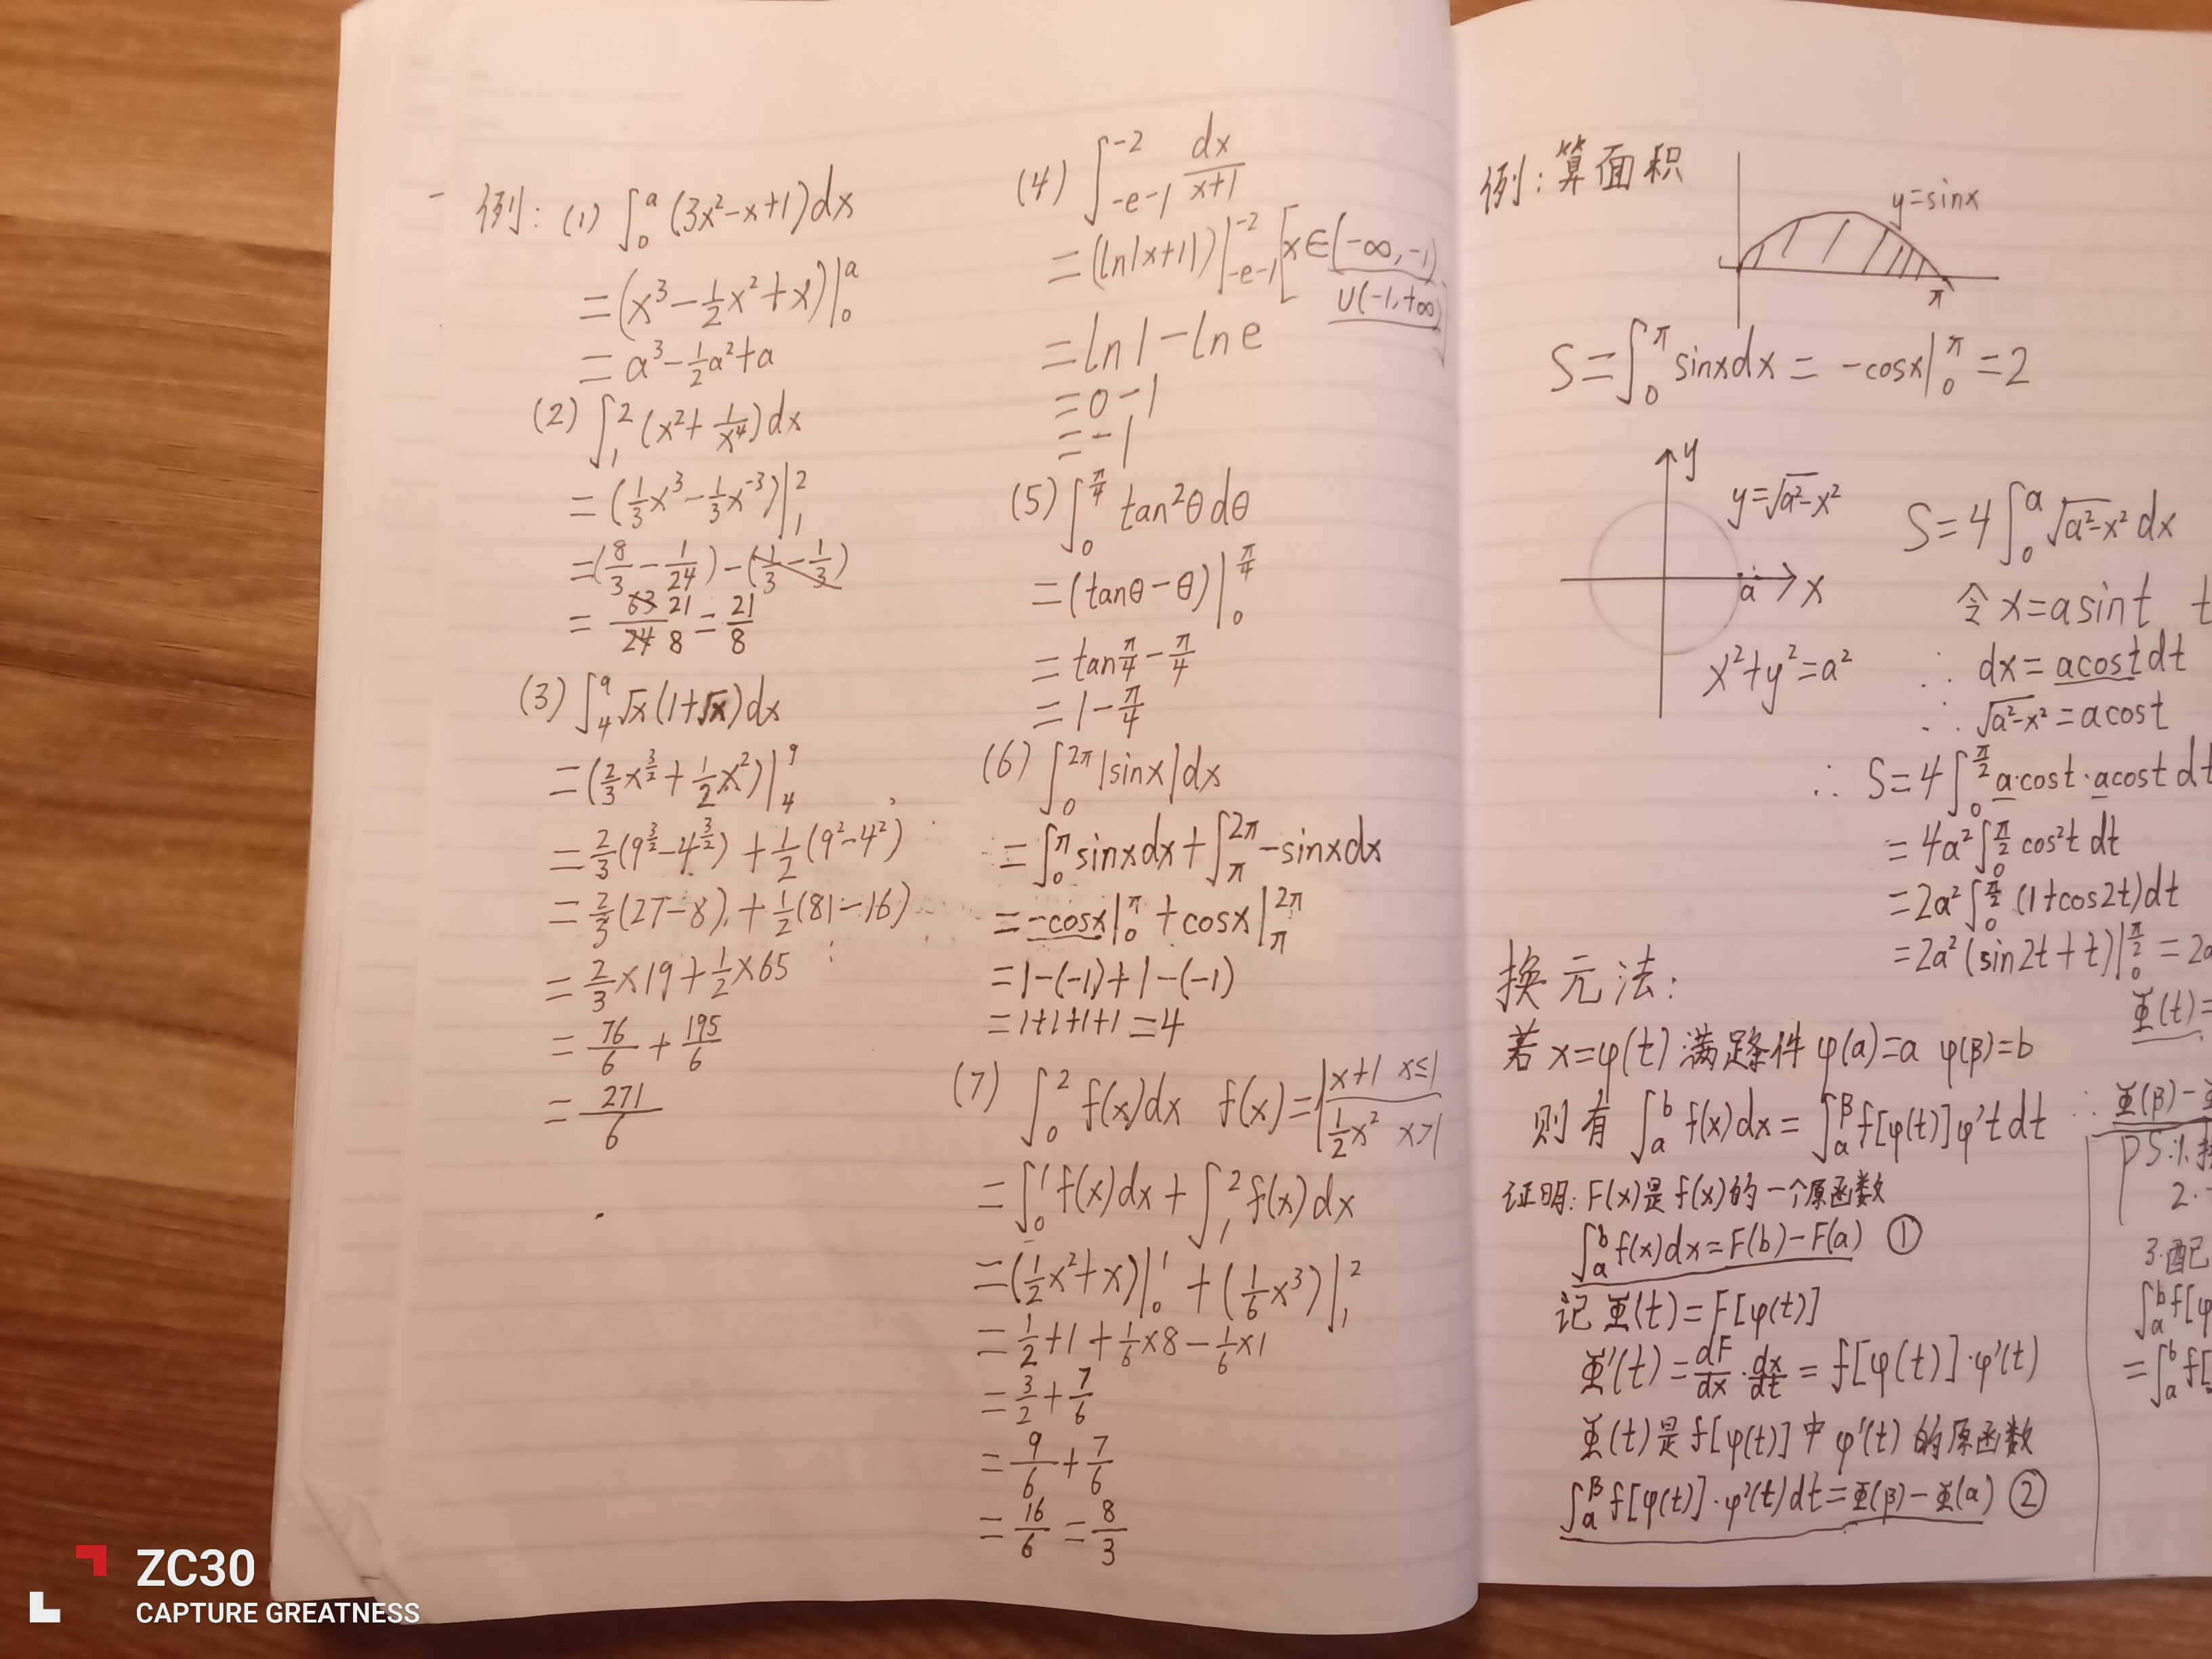 例: (1) ∫₀ᵃ (3x²-x+1)dx
=(x³-½x²+x)|₀ᵃ
= a³-½a²+a
(2) ∫₁² (x²+1/x⁴)dx
= (⅓x³-⅓x⁻³)|₁²
=(8/3-1/24)-(1/3-1/3)
= 63/24 21/8 = 21/8
(3) ∫₄⁹ √x(1+√x)dx
=(⅔x^(3/2)+½x²)|₄⁹
=⅔(9^(3/2)-4^(3/2))+½(9²-4²)
=⅔(27-8)+½(81-16)
=⅔×19+½×65
= 76/6+195/6
= 271/6
(4) ∫₋ₑ₋₁⁻² dx/(x+1)
=(ln|x+1|)|₋ₑ₋₁⁻² [x∈(-∞,-1)
∪(-1,+∞)]
=ln1-lne
=0-1
=-1
(5) ∫₀^(π/4) tan²θdθ
=(tanθ-θ)|₀^(π/4)
=tanπ/4-π/4
=1-π/4
(6) ∫₀^(2π) |sinx|dx
=∫₀^π sinxdx+∫_π^(2π) -sinxdx
=-cosx|₀^π+cosx|_π^(2π)
=1-(-1)+1-(-1)
=1+1+1+1=4
(7) ∫₀² f(x)dx f(x)={x+1 x≤1
½x² x>1
=∫₀¹f(x)dx+∫₁²f(x)dx
=(½x²+x)|₀¹+(⅙x³)|₁²
=½+1+⅙×8-⅙×1
=3/2+7/6
=9/6+7/6
=16/6=8/3
例:算面积
y=sinx
π
S=∫₀^π sinxdx=-cosx|₀^π=2
y
y=√(a²-x²)
a x
x²+y²=a²
S=4∫₀ᵃ√(a²-x²)dx
令x=asint t
∴ dx=acostdt
∴ √(a²-x²)=acost
∴ S=4∫₀^(π/2) a·cost·acostdt
=4a²∫₀^(π/2) cos²t dt
=2a²∫₀^(π/2) (1+cos2t)dt
=2a²(sin2t+t)|₀^(π/2)=2a
换元法:
若x=φ(t)满足条件φ(a)=a φ(β)=b
则有 ∫ₐᵇf(x)dx=∫ₐ^β f[φ(t)]φ't dt
证明:F(x)是f(x)的一个原函数
∫ₐᵇf(x)dx=F(b)-F(a) ①
记Φ(t)=F[φ(t)]
Φ'(t)=dF/dx·dx/dt=f[φ(t)]·φ'(t)
Φ(t)是f[φ(t)]中φ'(t)的原函数
∫ₐ^β f[φ(t)]·φ'(t)dt=Φ(β)-Φ(a) ②
Φ(t)=
∴ Φ(β)-
PS:1.
2.
3.配
∫ₐᵇf[φ
=∫ₐᵇf[
ZC30
CAPTURE GREATNESS